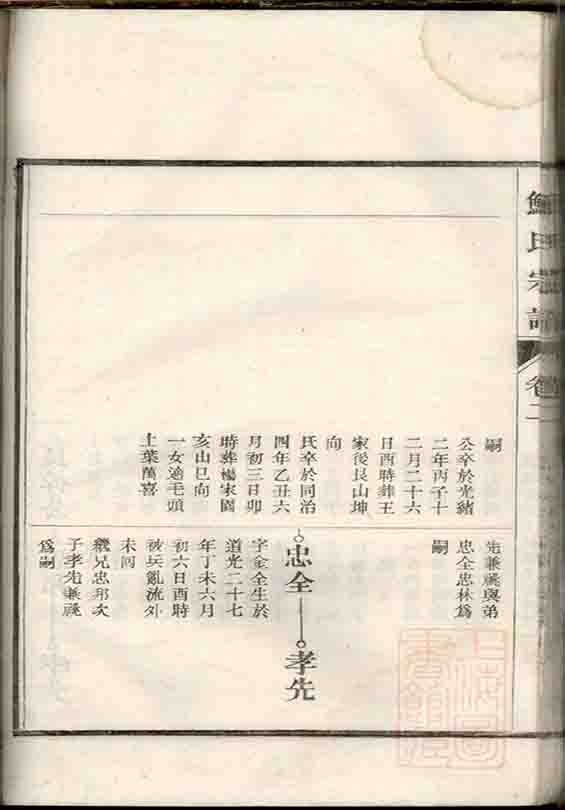 氏宗譜
卷二
嗣
公卒於光緒
二年丙子十
二月二十六
日酉時葬王
家後艮山坤
向
氏卒於同治
四年乙丑六
月初三日卯
時葬楊家園
亥山巳向
一女適毛頭
上葉萬喜
先兼祧與弟
忠全忠林為
嗣
忠全
孝先
字金全生於
道光二十七
年丁未六月
初六日酉時
被兵亂流外
未囘
繼兄忠邦次
子孝先兼祧
爲嗣
上海圖書館藏